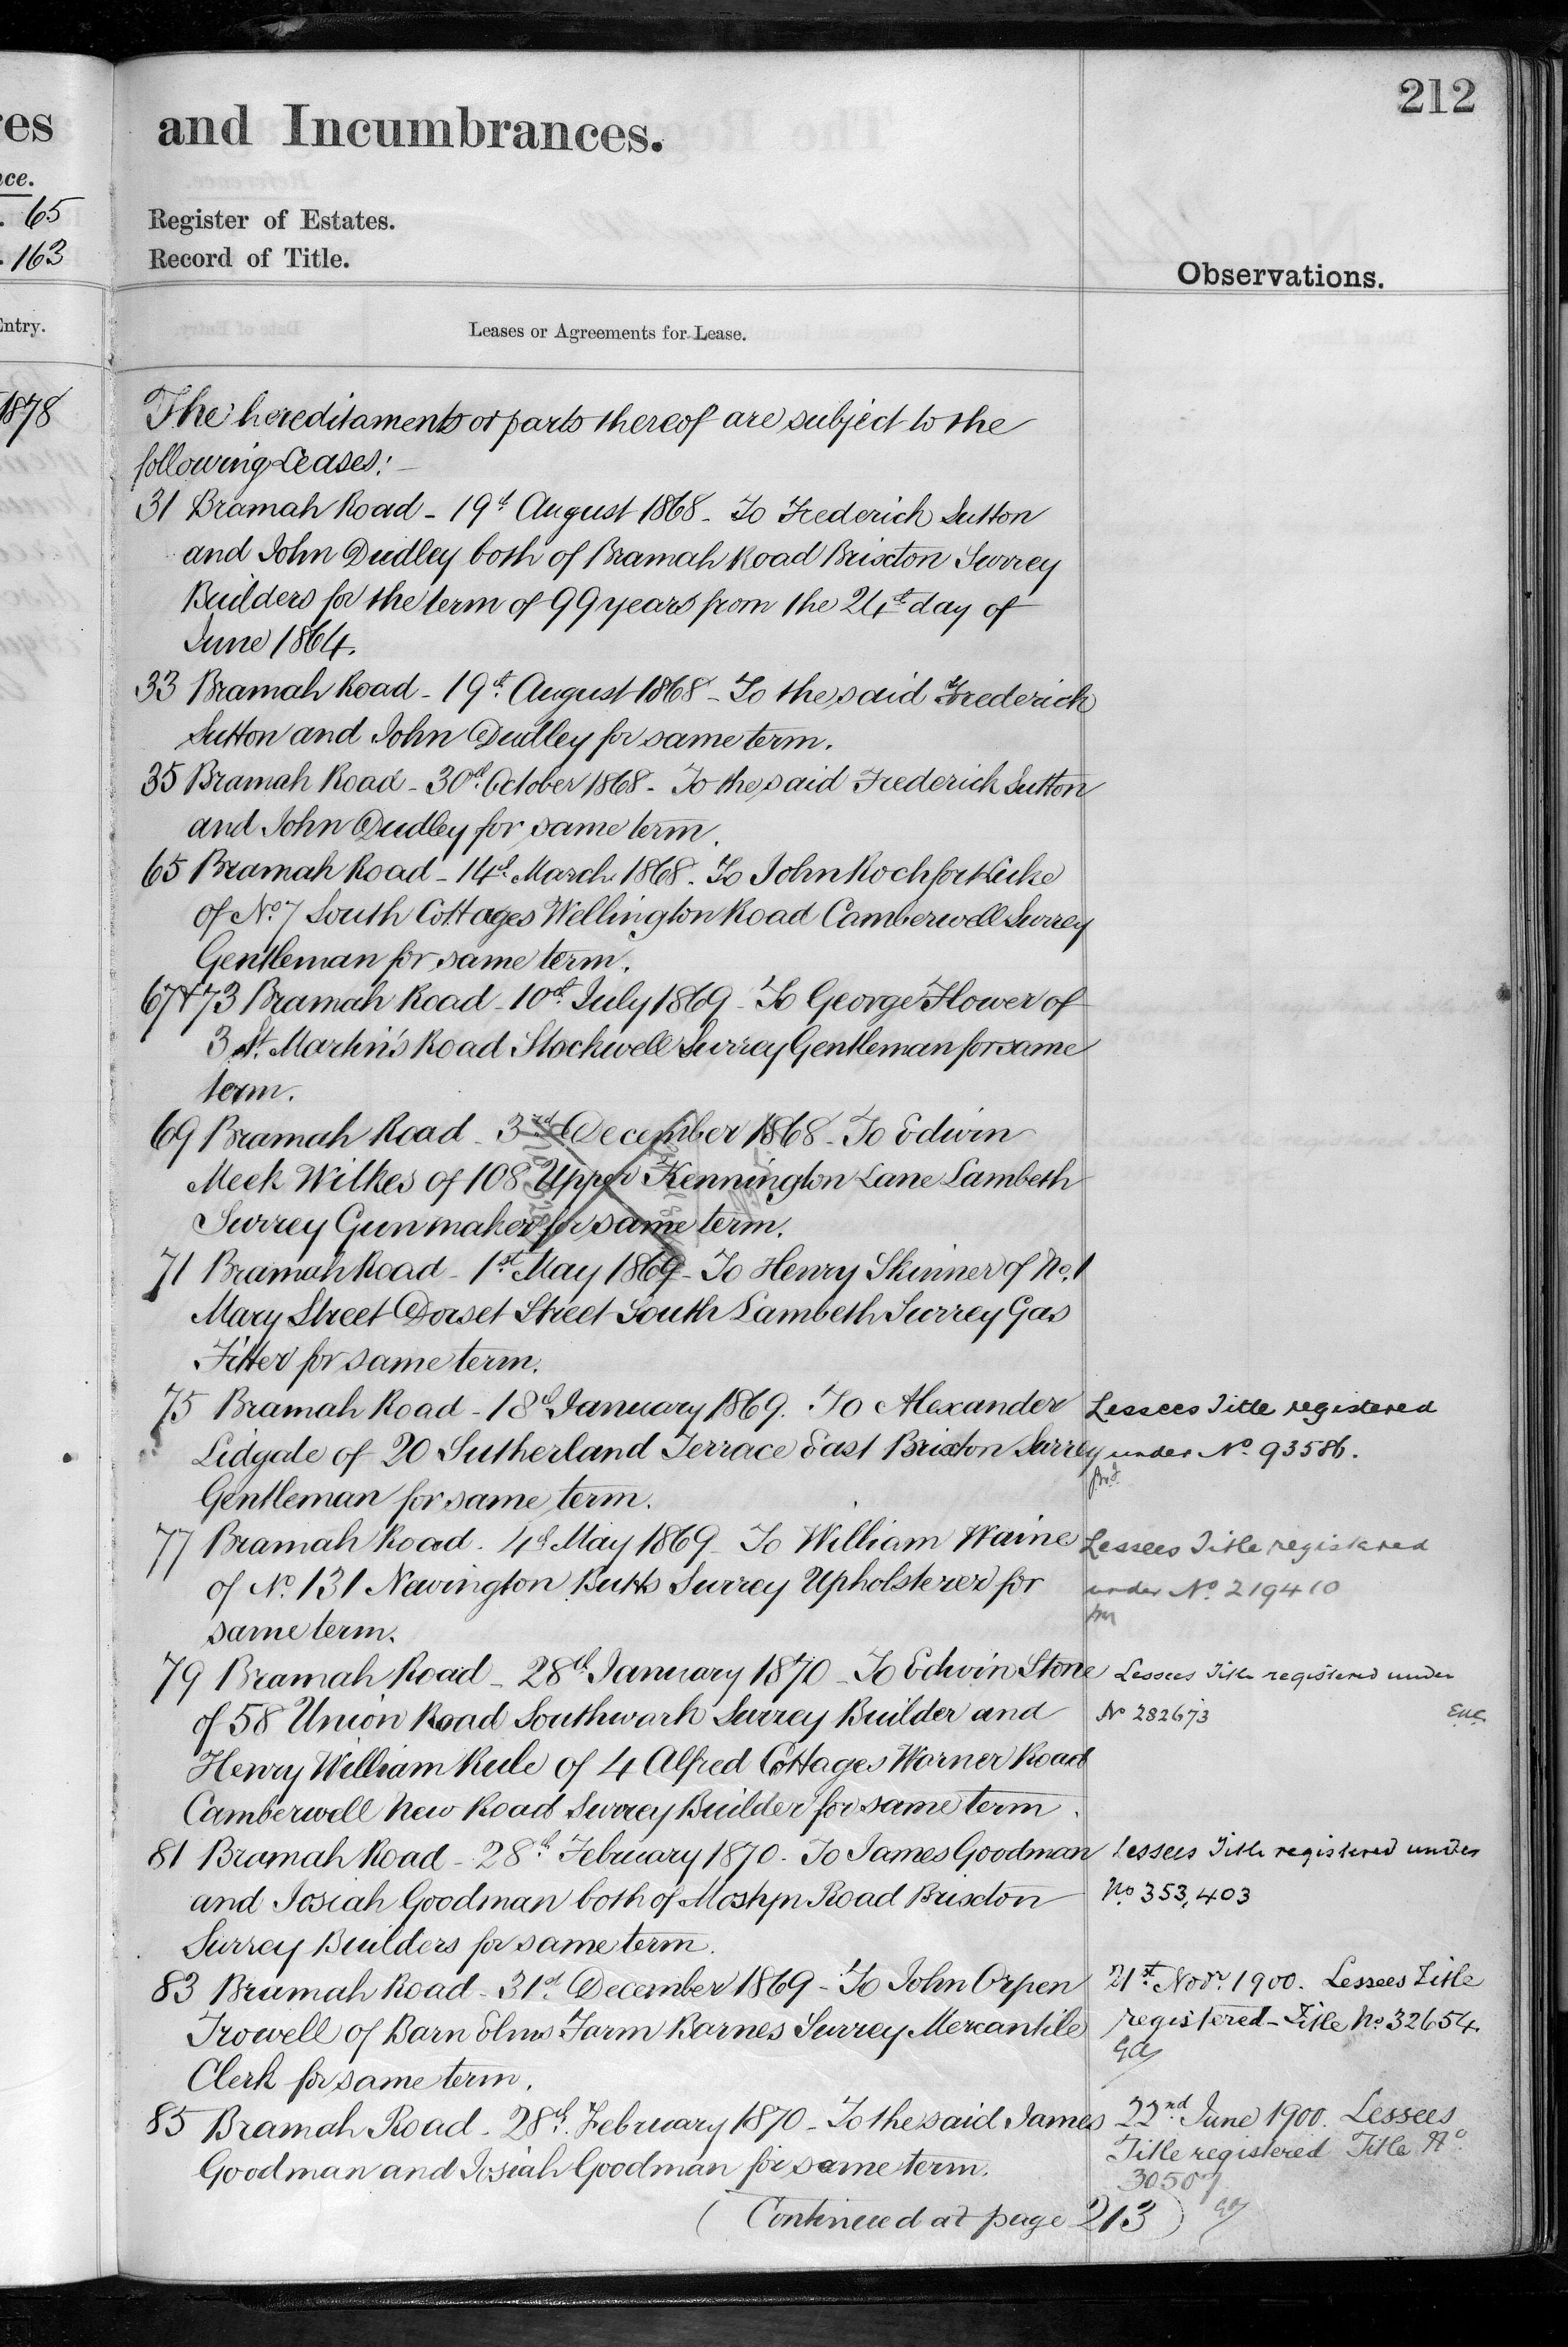 212
res
and Incumbrances.
nce.
. 65
Register of Estates.
. 163
Record of Title.
Observations.
Entry.
Leases or Agreements for Lease.
1878
The hereditaments or parts thereof are subject to the
following Leases:—
31 Bramah Road - 19th August 1868 - To Frederick Sutton
and John Dudley both of Bramah Road Brixton Surrey
Builders for the term of 99 years from the 24th day of
June 1864.
33 Bramah Road - 19th August 1868 - To the said Frederick
Sutton and John Dudley for same term.
35 Bramah Road - 30th October 1868 - To the said Frederick Sutton
and John Dudley for same term.
65 Bramah Road - 14th March 1868. To John Rochfort
of No. 7 South Cottages Wellington Road Camberwell Surrey
Gentleman for same term.
67 & 73 Bramah Road - 10th July 1869 - To George Flower of
3 St. Martin's Road Stockwell Surrey Gentleman for same
term.
69 Bramah Road - 3rd December 1868 - To Edwin
Meek Wilkes of 108 Upper Kennington Lane Lambeth
Surrey Gunmaker for same term.
71 Bramah Road - 1st May 1869 - To Henry Skinner of No. 1
Mary Street Dorset Street South Lambeth Surrey Gas
Fitter for same term.
75 Bramah Road - 18th January 1869. To Alexander
Lidgate of 20 Sutherland Terrace East Brixton Surrey
Gentleman for same term.
Lessees Title registered
under No. 93586.
77 Bramah Road. 4th May 1869 - To William Waine
of No. 131 Newington Butts Surrey Upholsterer for
same term.
Lessees Title registered
under No. 219410
79 Bramah Road - 28th January 1870 - To Edwin Stone
of 58 Union Road Southwark Surrey Builder and
Henry William Rule of 4 Alfred Cottages Warner Road
Camberwell New Road Surrey Builder for same term.
Lessees Title registered under
No 282673
81 Bramah Road - 28th February 1870 - To James Goodman
and Josiah Goodman both of Mostyn Road Brixton
Surrey Builders for same term.
Lessees Title registered under
No. 353,403
83 Bramah Road - 31st December 1869 - To John Orpen
Trowell of Barn Elms Farm Barnes Surrey Mercantile
Clerk for same term.
21st Novr. 1900. Lessees Title
registered - Title No. 32654.
85 Bramah Road - 28th February 1870 - To the said James
Goodman and Josiah Goodman for same term.
22nd June 1900. Lessees
Title registered Title No.
30507
(Continued at page 213)